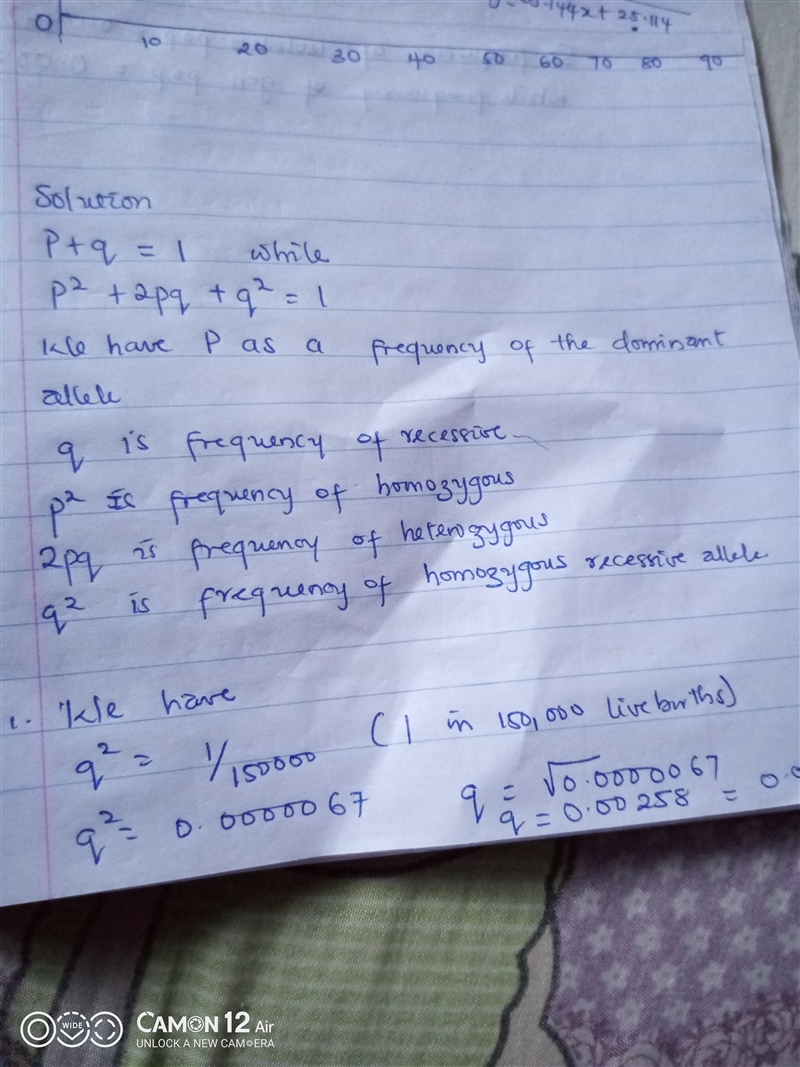 144x + 25.114
0
10 20 30 40 50 60 70 80 90
Solution
P+q = 1 while
P² + 2pq + q² = 1
We have P as a frequency of the dominant
allele
q is frequency of recessive
p² is frequency of homozygous
2pq is frequency of heterozygous
q² is frequency of homozygous recessive allele
1. We have
q² = 1/150000 (1 in 150,000 livebirths)
q² = 0.0000067 q = √0.0000067
q = 0.00258 = 0.0
WIDE
CAMON 12 Air
UNLOCK A NEW CAM-ERA